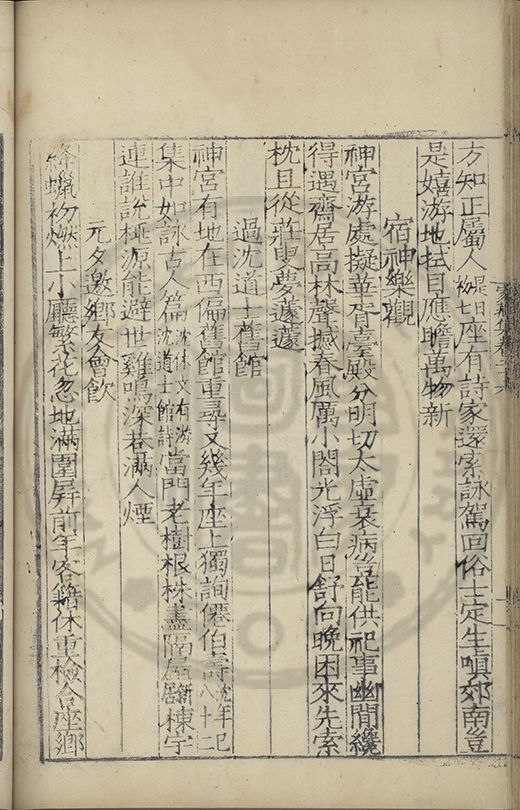 方知正屬人是日初七座有詩家還索詠駕回俗士定生嗔郊南豈
是嬉游地拭目應瞻萬物新
宿神樂觀
神宮游處擬華胥臺殿分明切太虛衰病豈能供祀事幽閒纔
得遇齋居高林聲撼春風厲小閣光浮白日舒向晚困來先索
枕且從莊叟夢蘧蘧
過沈道士舊館
神宮有地在西偏舊館重尋又幾年座上獨詢僊伯壽沈年已八十二
集中如詠古人篇沈休文有游沈道士館詩當門老樹根株盡隔屋新居棟宇
連誰說桃源能避世雞鳴深巷滿人煙
元夕邀鄉友會飲
絳蠟初燃上小廳繁花忽地滿圍屏前年客籍休重檢合座鄉